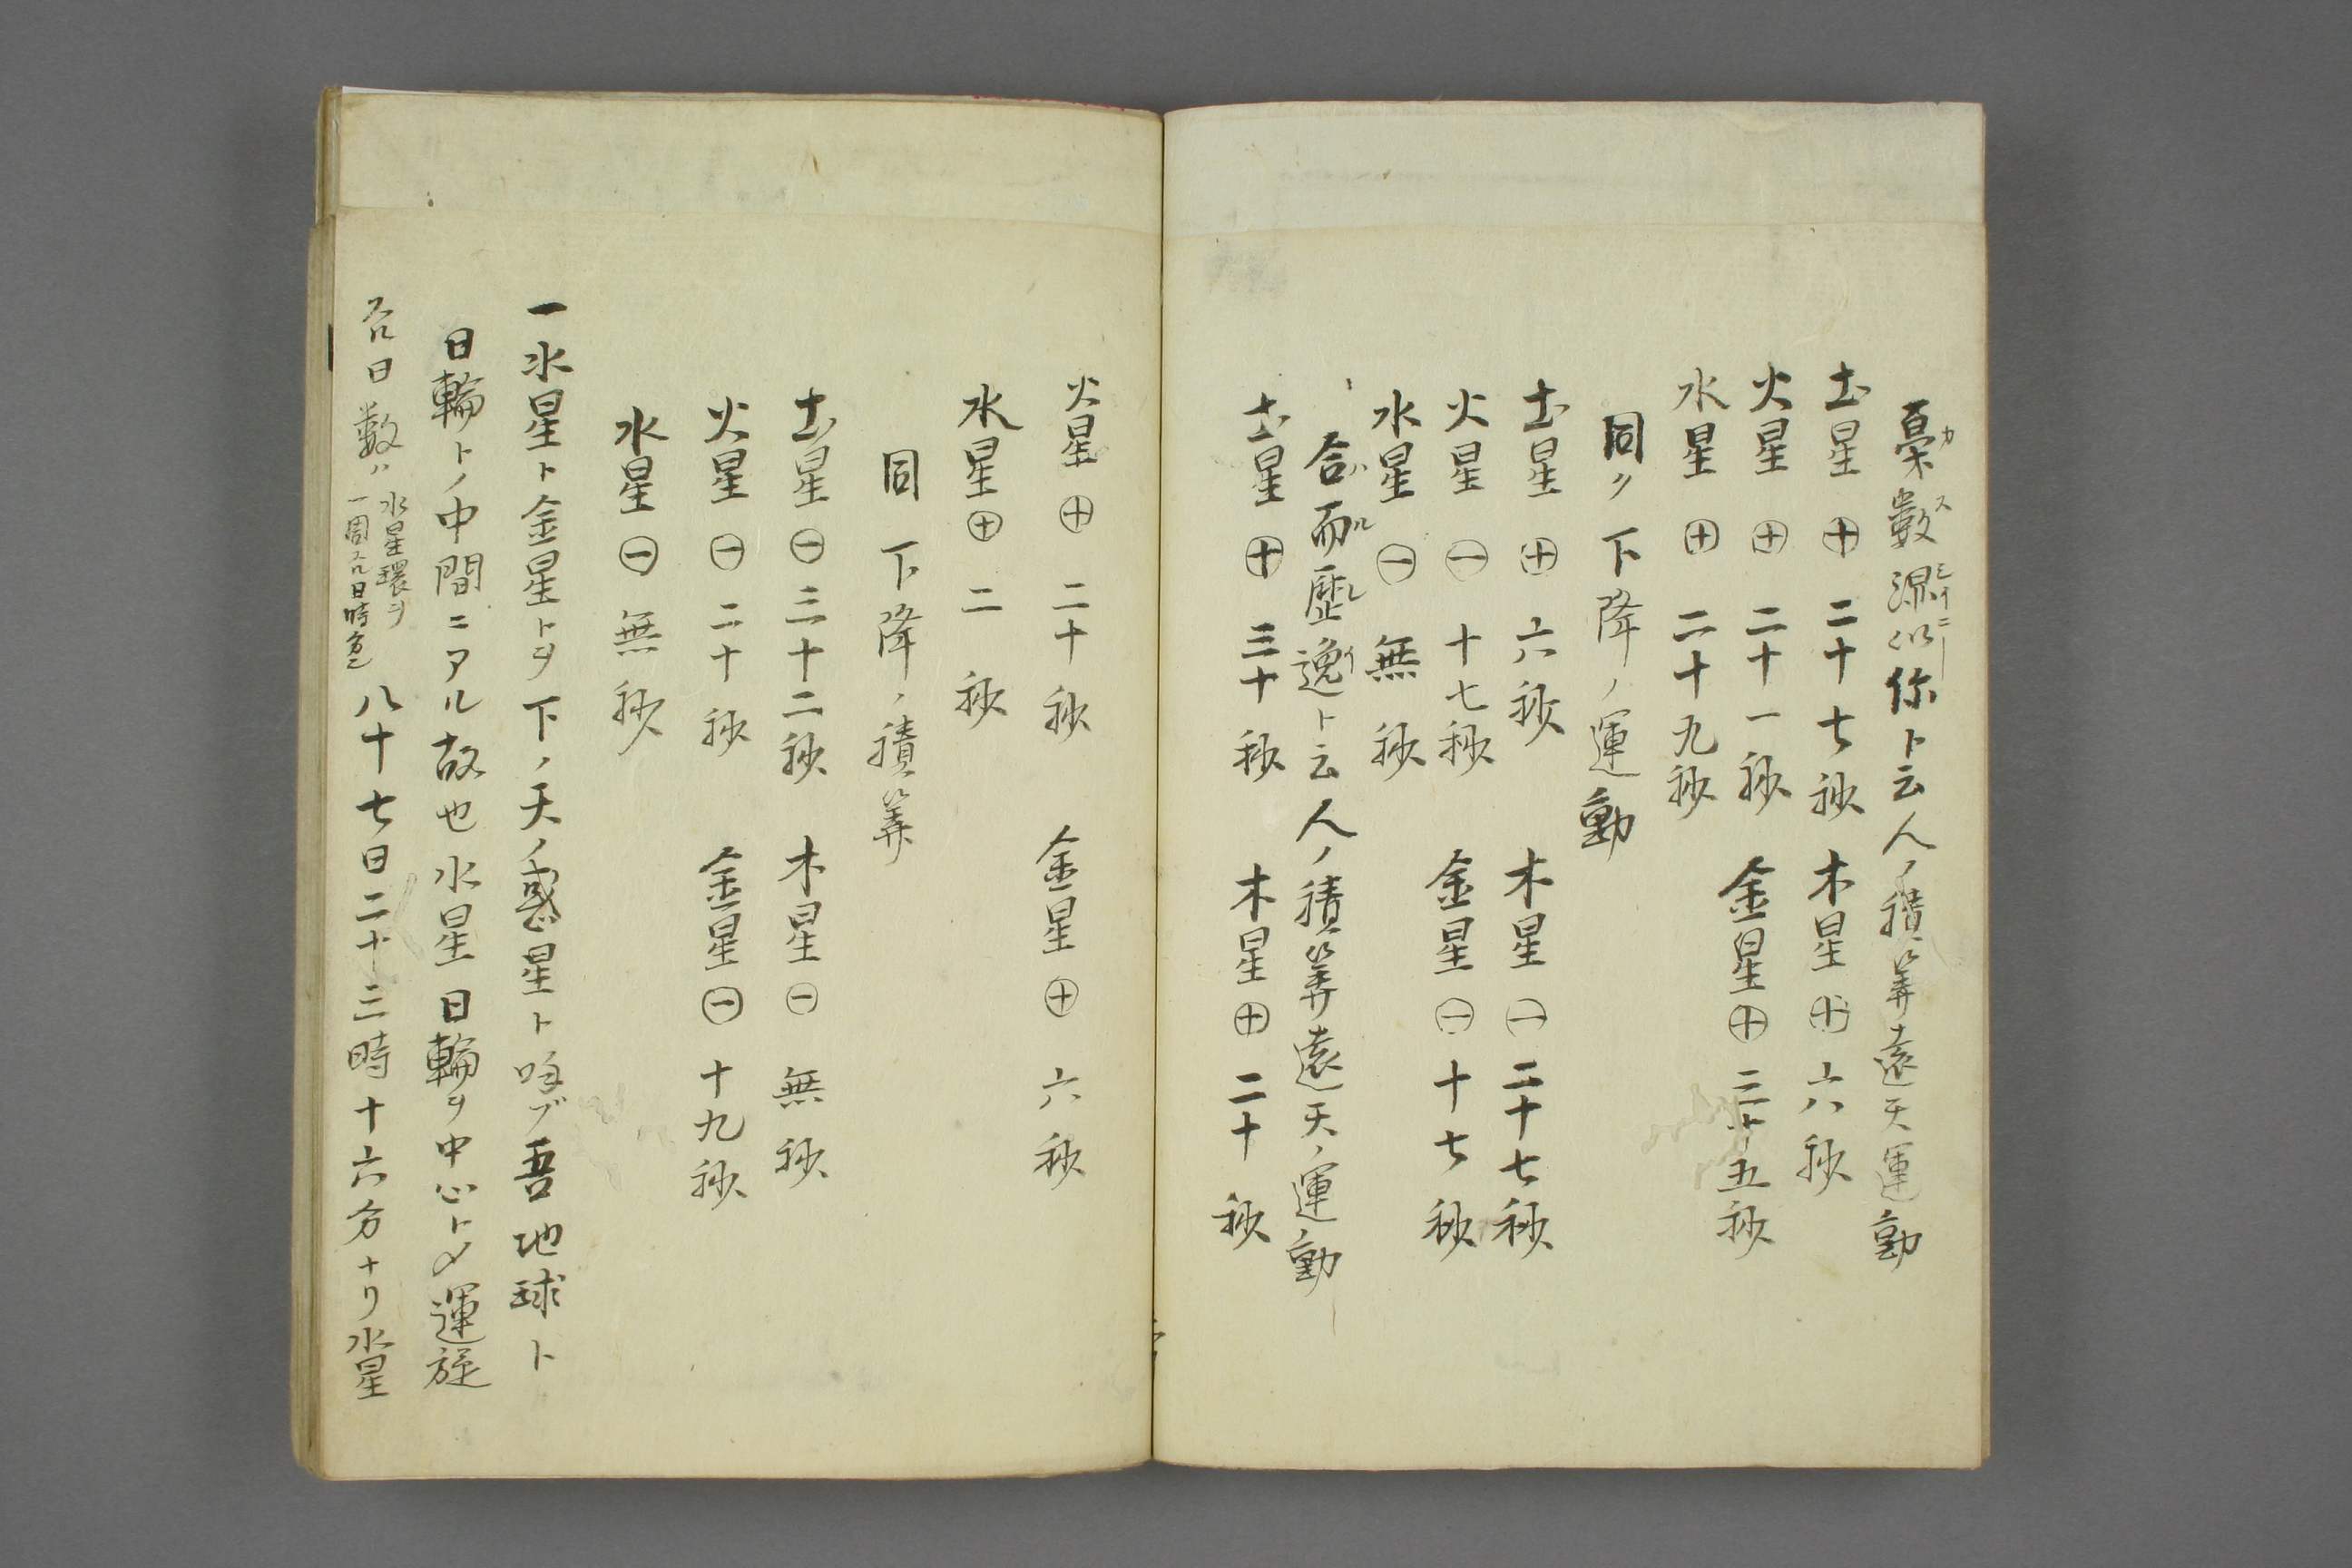 稾數湶以你ト云人ノ積筭遠天運動
カスシイニー
土星㊉二十七秒 木星㊉六秒
火星㊉二十一秒 金星㊉三十五秒
水星㊉二十九秒
同ク下降ノ運動
土星㊉六秒 木星㊀二十七秒
火星㊀十七秒 金星㊀十七秒
水星㊀無秒
合而歴逸ト云人ノ積筭遠天ノ運動
ハルレイ
土星㊉三十秒 木星㊉二十秒
火星㊉二十秒 金星㊉六秒
水星㊉二秒
同下降ノ積筭
土星㊀三十二秒 木星㊀無秒
火星㊀二十秒 金星㊀十九秒
水星㊀無秒
一水星ト金星トヲ下ノ天ノ惑星ト呼ブ吾地球ト
日輪トノ中間ニアル故也水星日輪ヲ中心トメ運旋
スル日数ハ
水星環ヲ
一周スル日時
八十七日二十三時十六分ナリ水星